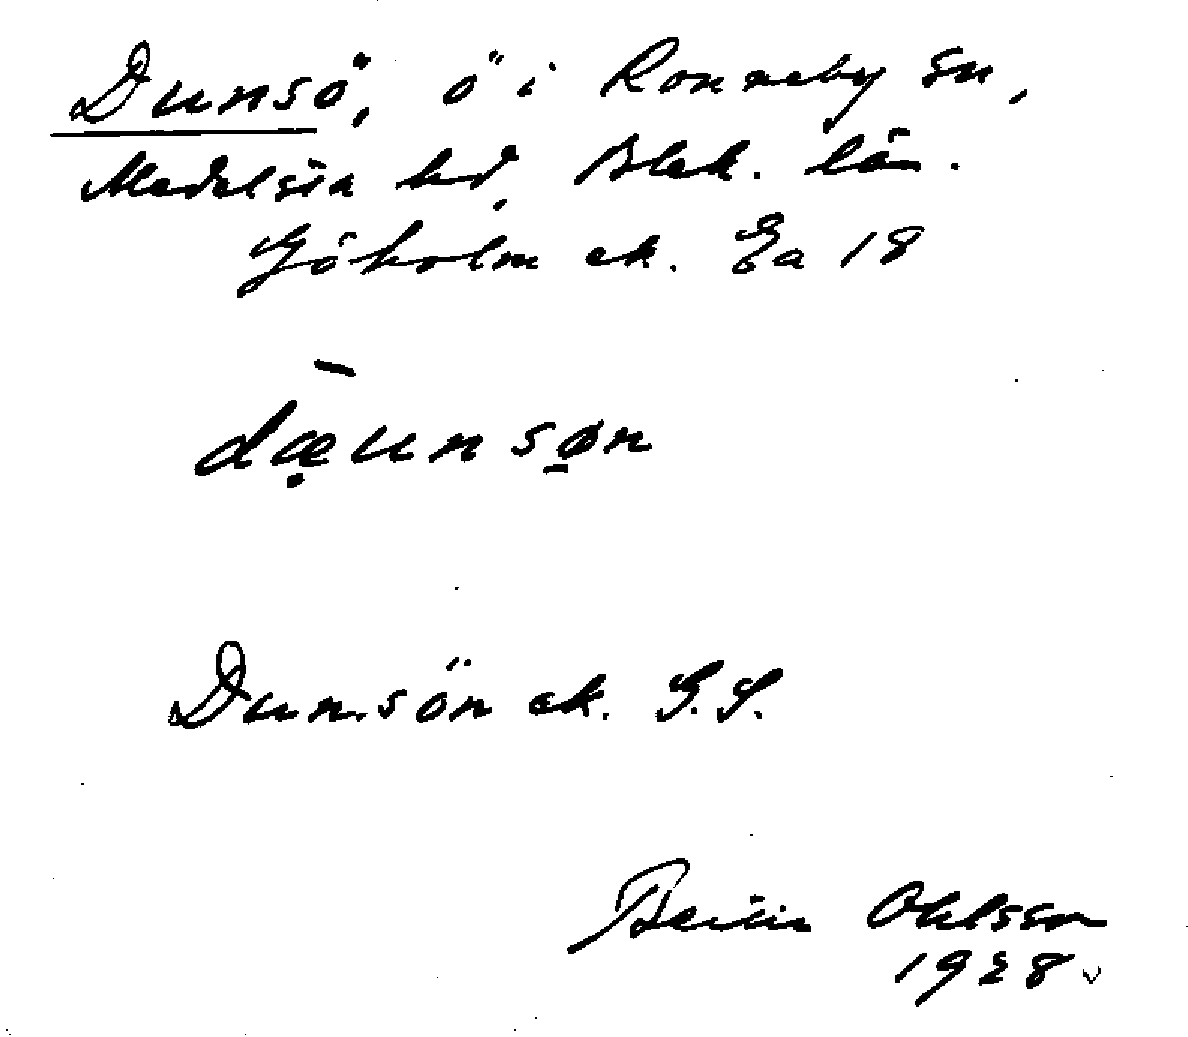 Dunsö, ö i Ronneby sn,
Medelsta hd, Blek. län.
Göholm ek. Ea 18
dæ̣unsø̱n
Dunsön ek. G.S.
Ohlsson
1928